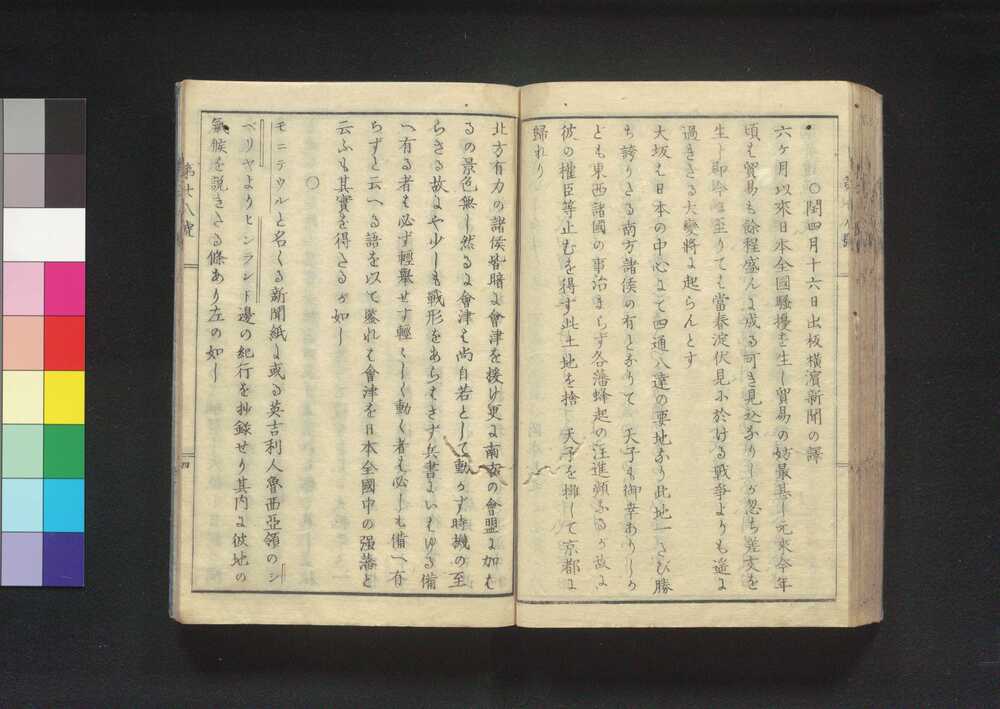 ○閏四月十六日出板橫濱新聞の譯
六ヶ月以來日本全國騷擾を生し貿易の妨最甚し元來今年
頃も貿易も餘程盛んに成る可き見込ありしが忽ち差支を
生し即今に至りても當春淀伏見に於ける戰爭よりも遙に
過ぎさる大變將に起らんとす
大坂も日本の中心にて四通八達の要地あり此地一さび勝
ち誇りさる南方諸侯の有とありて 天子も御幸ありしか
ども東西諸國の事治まらず各藩蜂起の注進頻ふるが故に
彼の權臣等止むを得ず此土地を捨 天子を擁して京都に
歸れり
北方有力の諸侯皆暗に會津を援け更に南方の會盟に加む
るの景色無し然るに會津も尚自若として動かず時機の至
らざる故にや少しも戰形をあらもさず兵書にいもゆる備
へ有る者も必ず輕舉せず輕〱しく動く者も必しも備へ有
らずと云へる語を以て鑒れも會津を日本全國中の强藩と
云ふも其實を得さるが如し
○
モニテウルと名くる新聞紙に或る英吉利人魯西亞領のシ
ベリヤよりヒンランド邊の紀行を抄録せり其内に彼地の
氣候を說きさる條あり左の如し
第廿八號
四